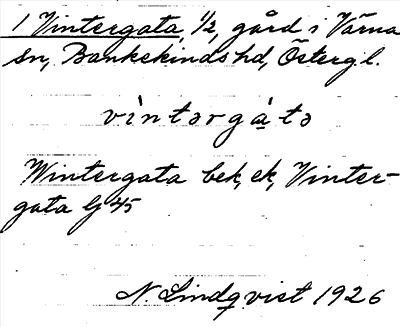 1 Vintergata, 1/2, gård i Värna
sn, Bankekinds hd, Östergl.
vìntərgàtə
Wintergata bek, ek, Vinter-
gata Gj 45
N. Lindqvist 1926